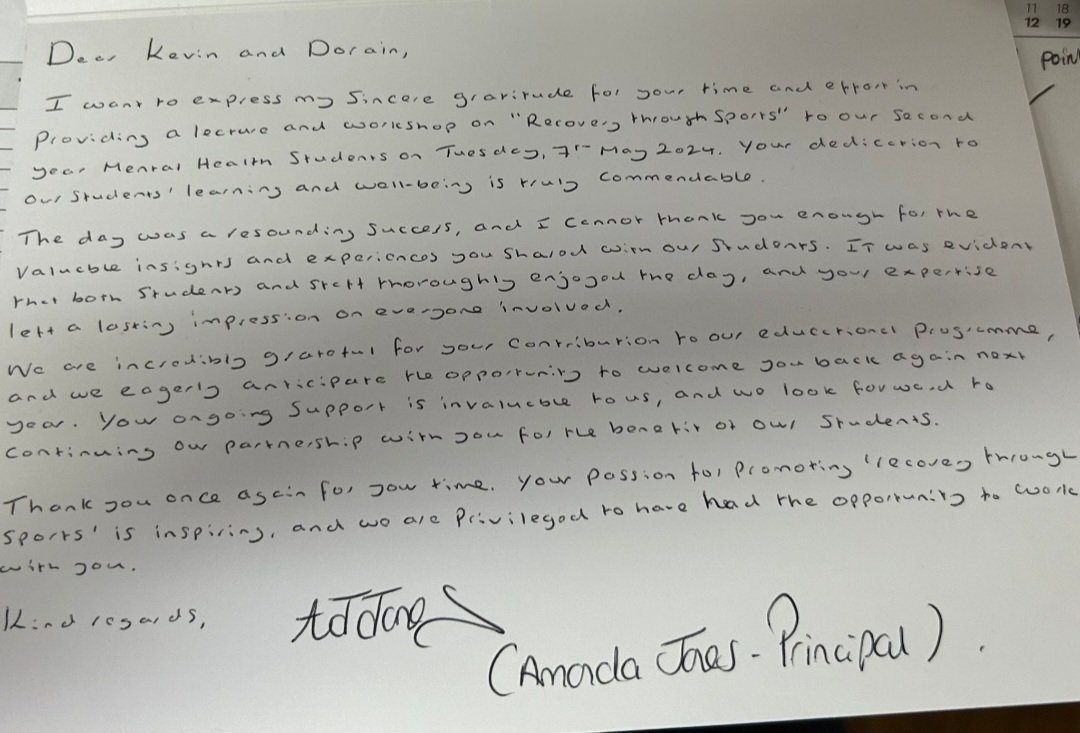 11 18
12 19
Point
Dear Kevin and Dorain,
I want to express my sincere gratitude for your time and effort in
providing a lecture and workshop on "Recovery through Sports" to our second
year Mental Health Students on Tuesday, 7th May 2024. Your dedication to
our students' learning and well-being is truly commendable.
The day was a resounding success, and I cannot thank you enough for the
valuable insights and experiences you shared with our students. It was evident
that both students and staff thoroughly enjoyed the day, and your expertise
left a lasting impression on everyone involved.
We are incredibly grateful for your contribution to our educational programme,
and we eagerly anticipate the opportunity to welcome you back again next
year. Your ongoing support is invaluable to us, and we look forward to
continuing our partnership with you for the benefit of our students.
Thank you once again for your time. Your passion for promoting 'recovery through
sports' is inspiring, and we are privileged to have had the opportunity to work
with you.
Kind regards,
(Amanda Jones - Principal).